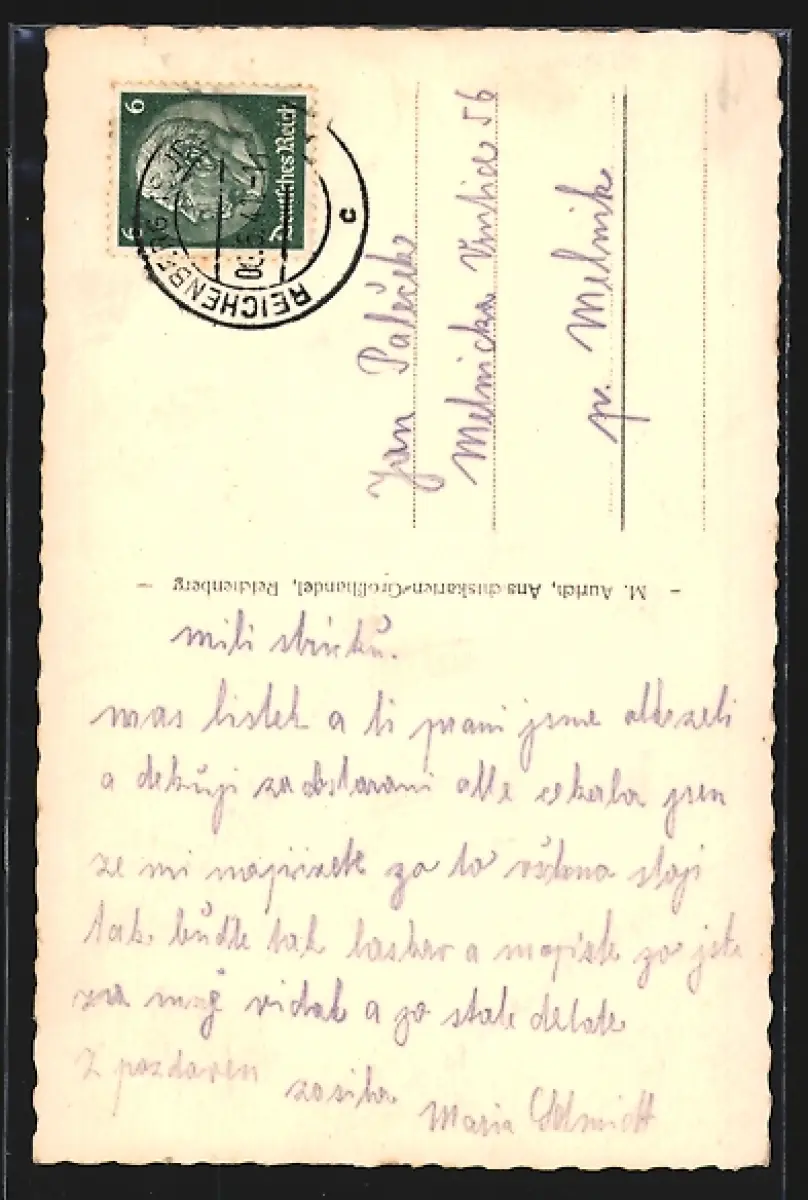 6
6
Deutsches Reich
REICHENBERG
c
Jan Paleček
Melnicka Vrutice 56
p. Melnik
– M. Aurich, Ansichtskarten-Großhandel, Reichenberg –
mili strícku.
was listek a ti psani jsme obdrzeli
a dekuji za obstarani alle cekala jsen
ze mi napisete zo to všechno stoji
tak budte tak laskav a napiste zo jste
za moj vidal a zo stale delate
Z pozdraven zasila Maria Schmidt